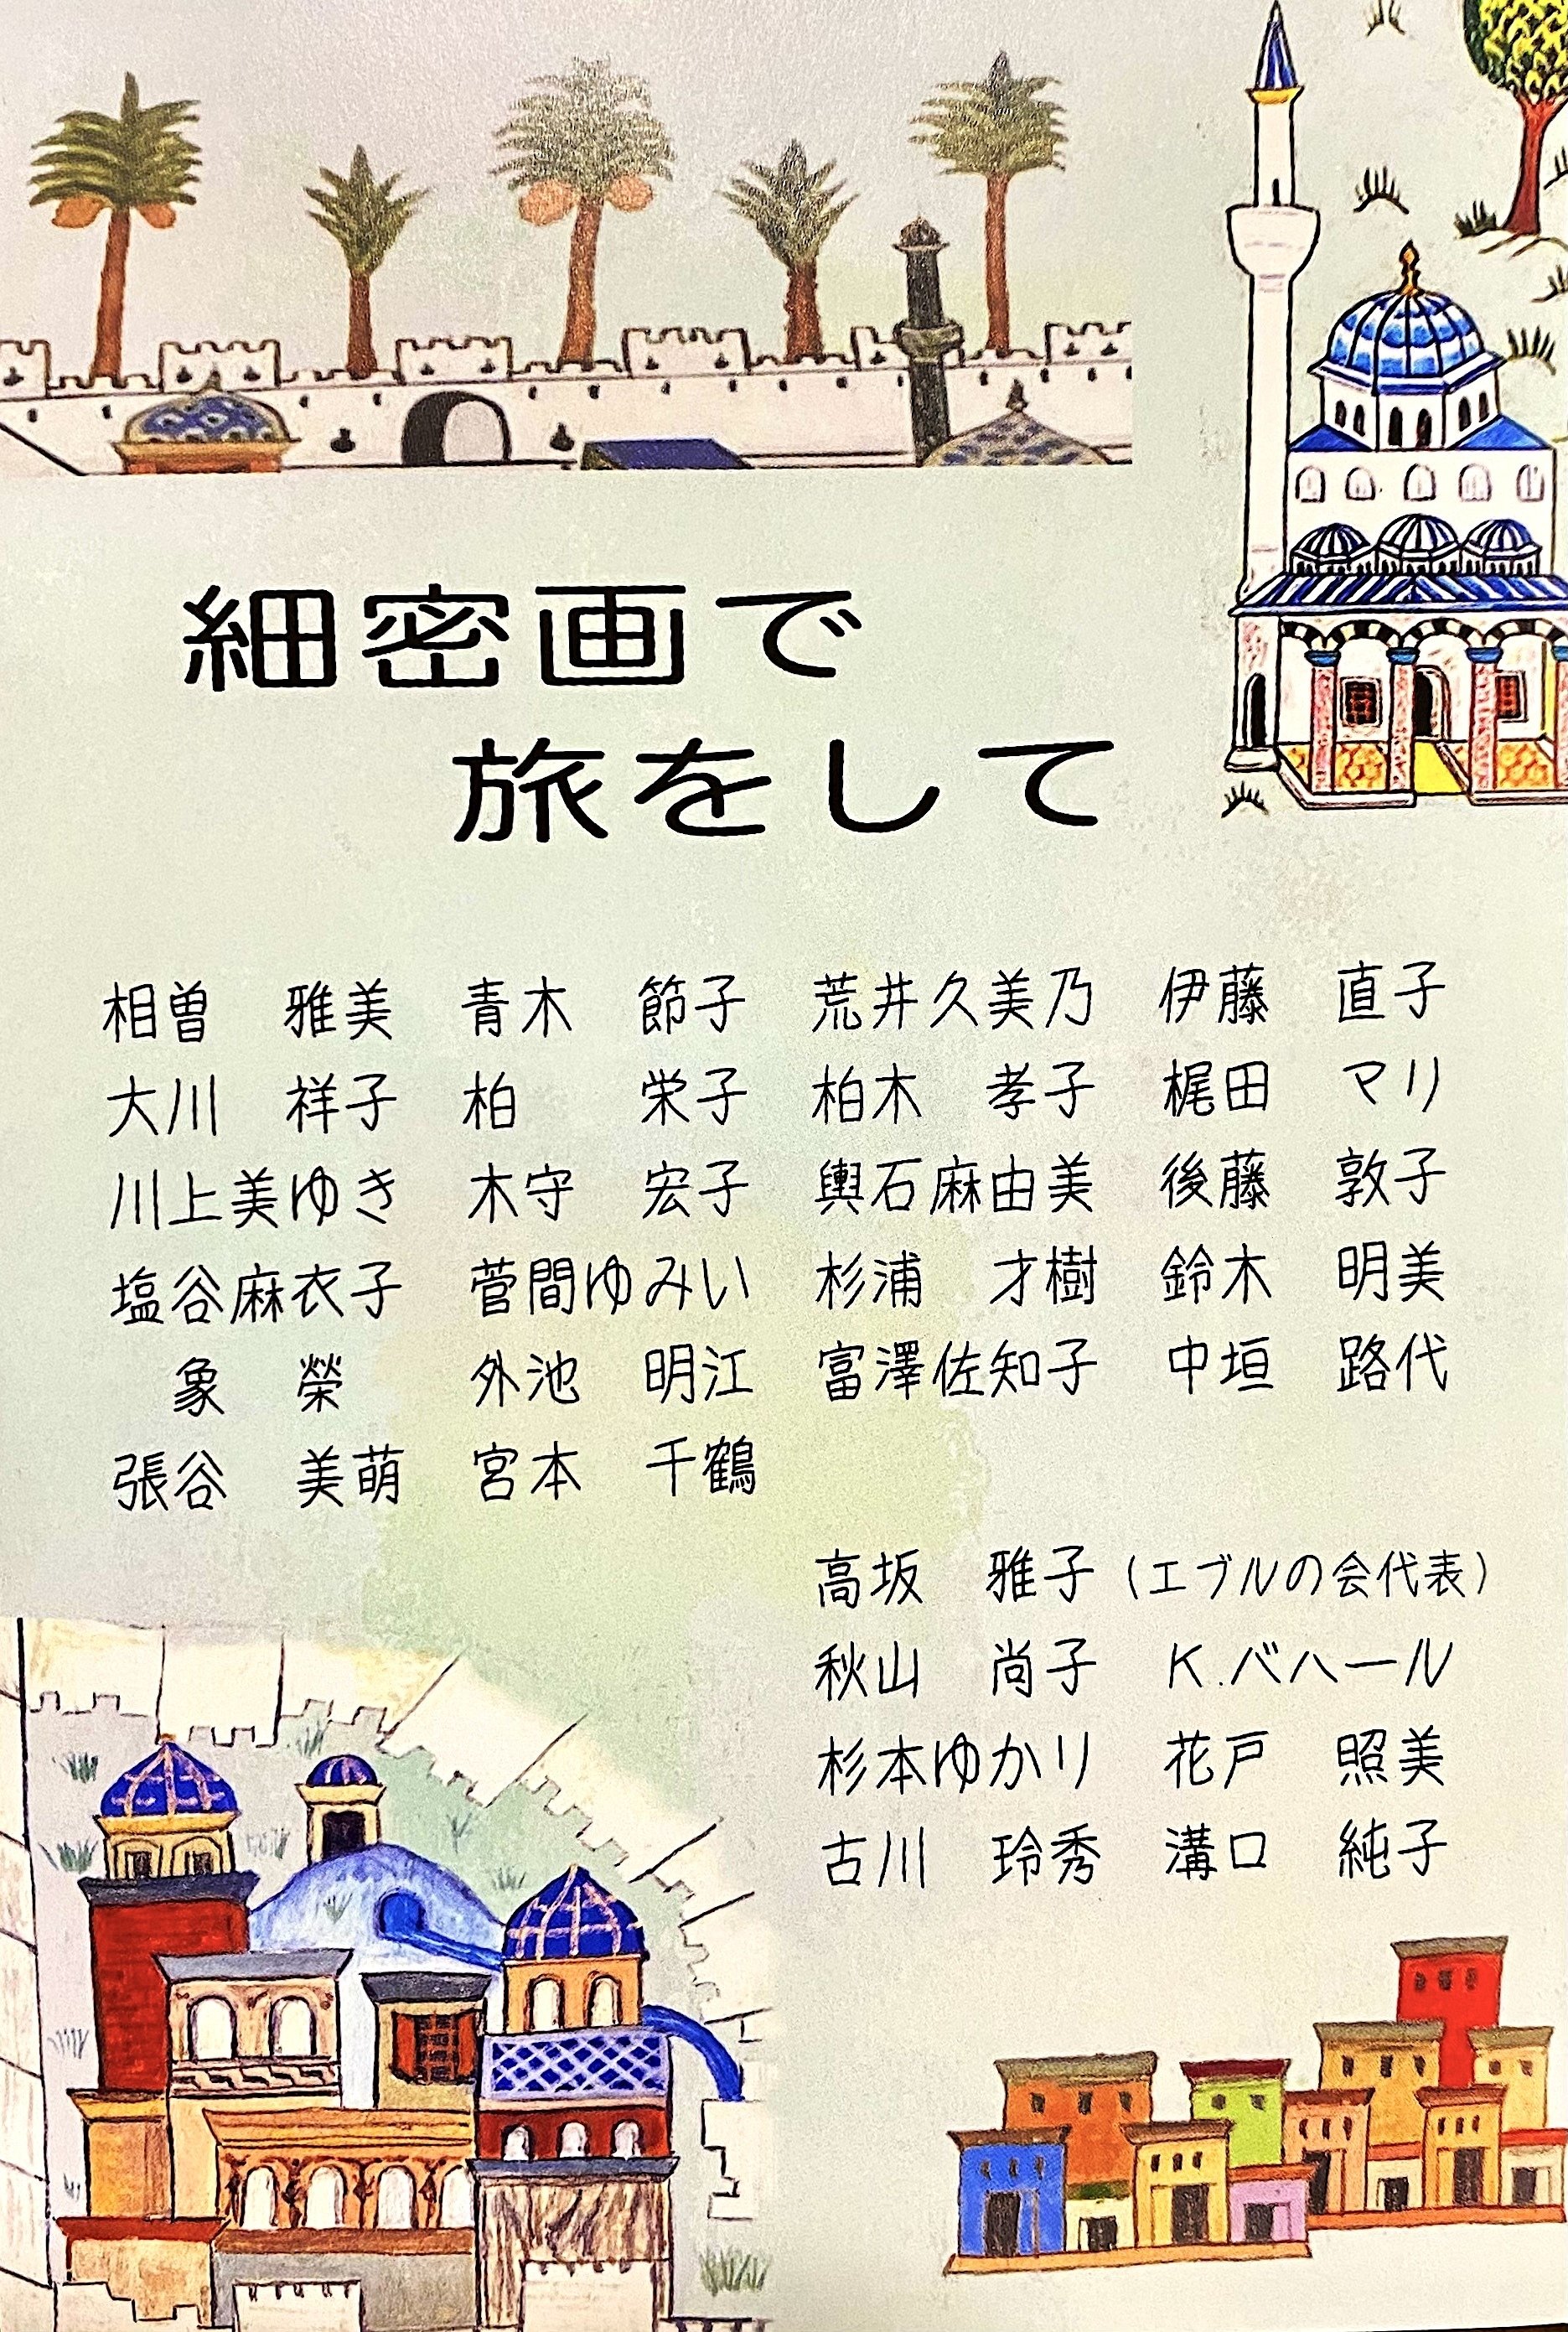 細密画で
旅をして
相曽　雅美　青木　節子　荒井久美乃　伊藤　直子
大川　祥子　柏　　栄子　柏木　孝子　梶田　マリ
川上美ゆき　木守　宏子　輿石麻由美　後藤　敦子
塩谷麻衣子　菅間ゆみい　杉浦　才樹　鈴木　明美
象　榮　外池　明江　富澤佐知子　中垣　路代
張谷　美萌　宮本　千鶴
高坂　雅子（エブルの会代表）
秋山　尚子　K.バハール
杉本ゆかり　花戸　照美
古川　玲秀　溝口　純子